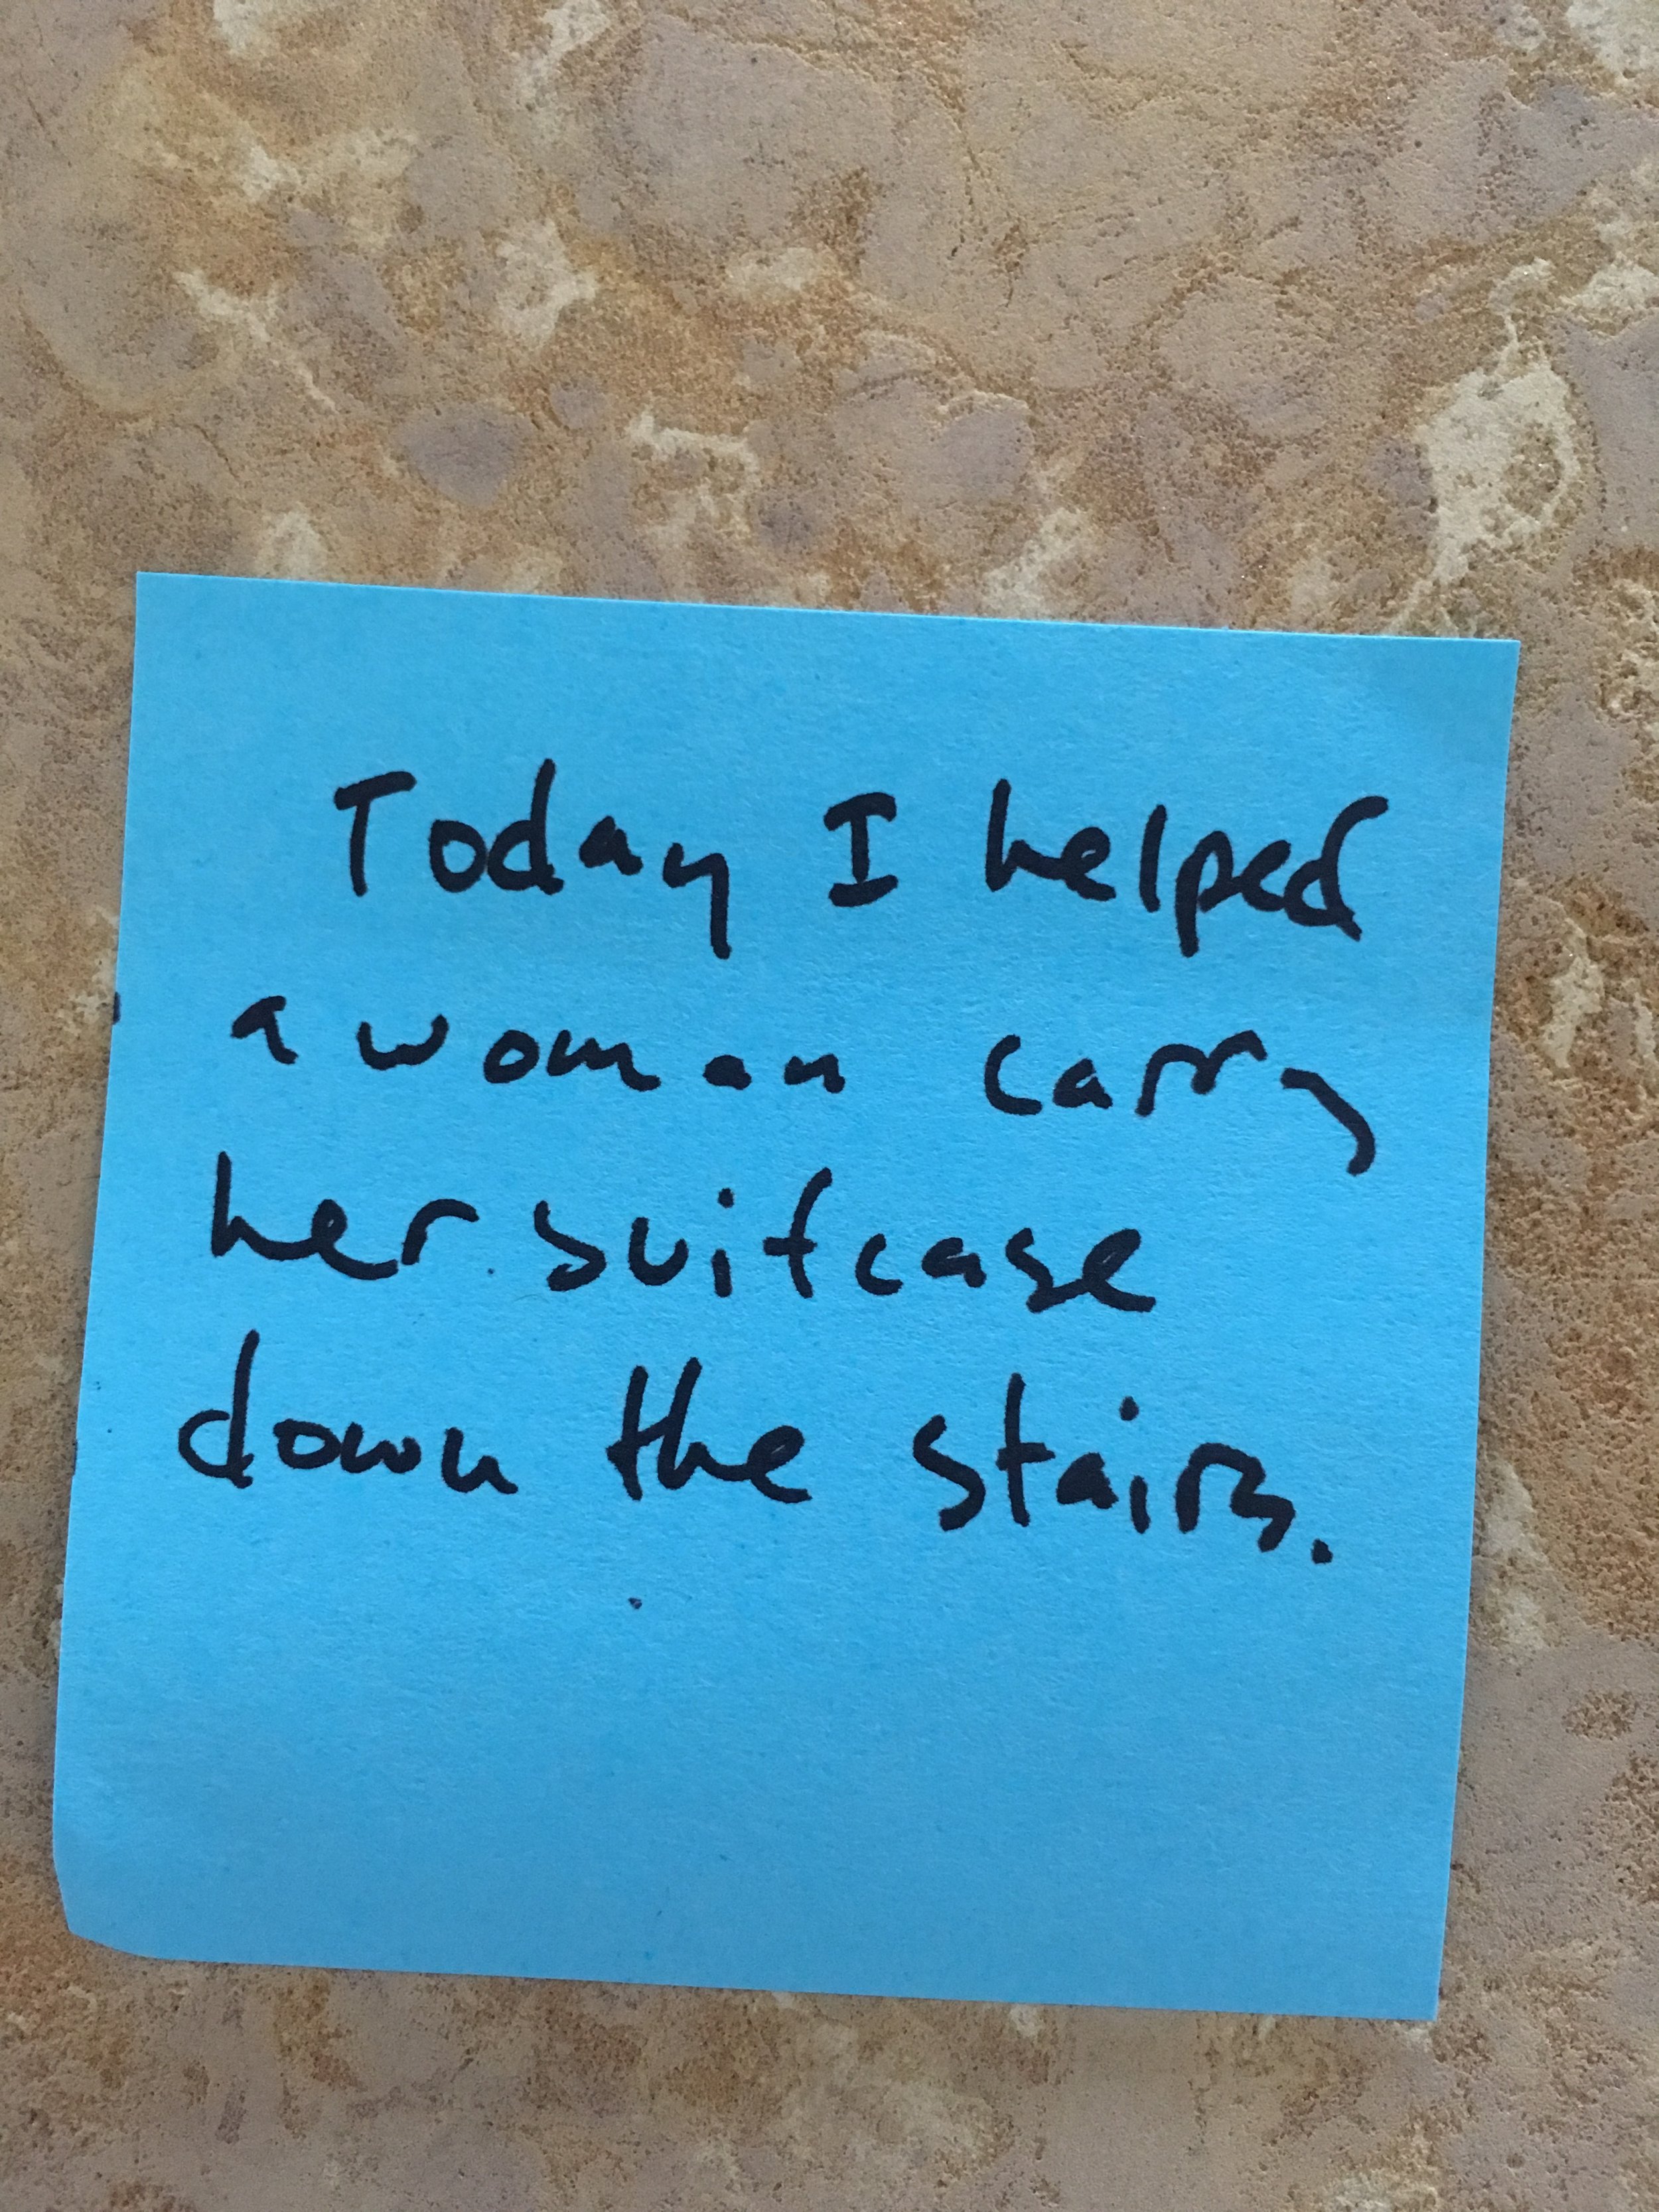 Today I helped
a woman carry
her suitcase
down the stairs.